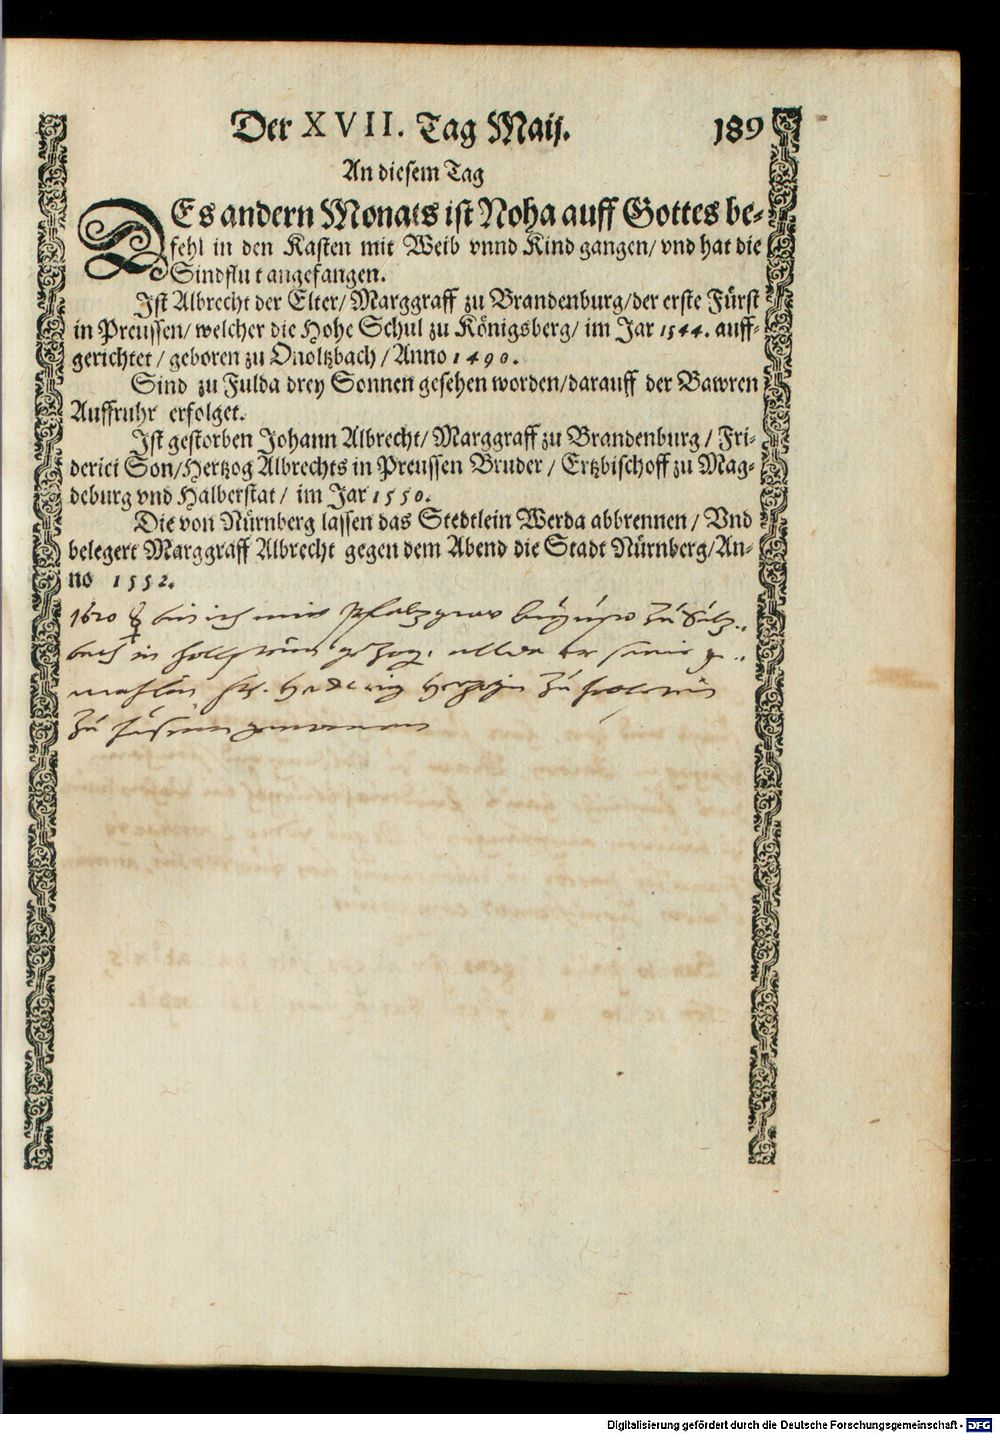 Der XVII. Tag Maij. 189
An diesem Tag
DEs andern Monats ist Noha auff Gottes be-
fehl in den Kasten mit Weib vnnd Kind gangen/ vnd hat die
Sindflut angefangen.
Ist Albrecht der Elter/ Marggraff zu Brandenburg/ der erste Fürst
in Preussen/ welcher die Hohe Schul zu Königsberg/ im Jar 1544. auff-
gerichtet/ geboren zu Onoltzbach/ Anno 1490.
Sind zu Fulda drey Sonnen gesehen worden/ darauff der Bawren
Auffruhr erfolget.
Ist gestorben Johann Albrecht/ Marggraff zu Brandenburg/ Fri-
derici Son/ Hertzog Albrechts in Preussen Bruder/ Ertzbischoff zu Mag-
deburg vnd Halberstat/ im Jar 1550.
Die von Nürnberg lassen das Stedtlein Werda abbrennen/ Vnd
belegert Marggraff Albrecht gegen dem Abend die Stadt Nürnberg/ An-
no 1552.
1620 ☿ bin ich mit Pfaltzgrav Augusto zu Sultz-
bach in Hollstein alda er seine ge-
mahlin Hedwig Hertzogin zu Holstein
zu
Digitalisierung gefördert durch die Deutsche Forschungsgemeinschaft - DFG